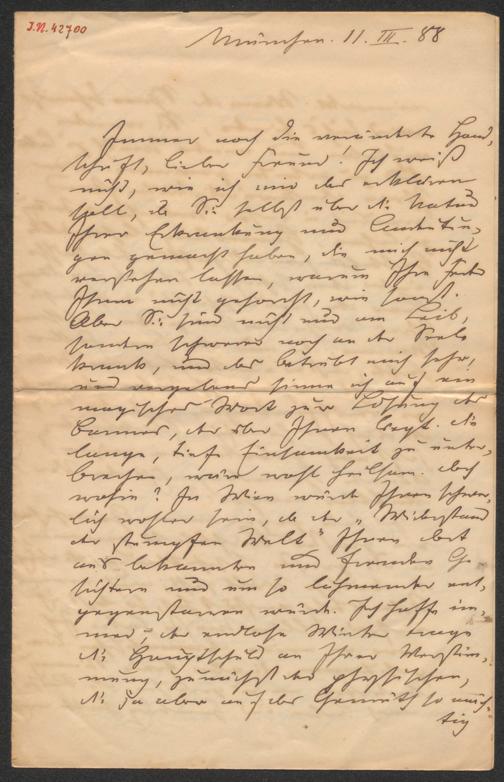 J.N. 42700
München. 11. III. 88
Immer noch die veränderte Hand,
schrift, lieber Freund! Ich weiß
nicht, wie ich mir das erklären
soll, da Sie selbst über die Natur
Ihrer Erkrankung nur Andeutun,
gen gemacht haben, die mich nicht
verstehen lassen, warum Ihre Feder
Ihnen nicht gehorcht, wie sonst.
Aber Sie sind nicht nur am Leib,
sondern schwerer noch an der Seele
krank, und das betrübt mich sehr,
und vergebens sinne ich auf ein
magisches Wort zur Lösung des
Bannes, der über Ihnen liegt. Die
lange, tiefe Einsamkeit zu unter,
brechen, wäre wohl heilsam. Doch
wohin? In Wien würde Ihnen schwer,
lich wohler sein, da der „Widerstand
der stumpfen Welt" Ihnen dort
aus bekannten und fremden Ge
sichtern und um so lähmender ent,
gegenstarren würde. Ich hoffe im,
mer, der endlose Winter trage
die Hauptschuld an Ihrer Verstim,
mung, zunächst der physischen,
die ja aber auf das Gemüth so mäch,
tig